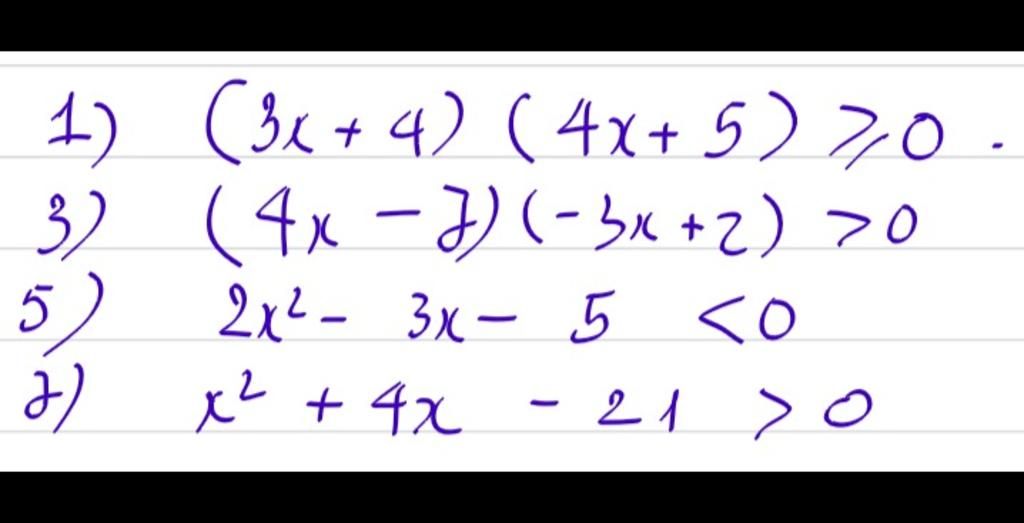 1) (3x + 4) (4x + 5) ⩾ 0 .
3) (4x - 7) (-3x + 2) > 0
5) 2x² - 3x - 5 < 0
7) x² + 4x - 21 > 0